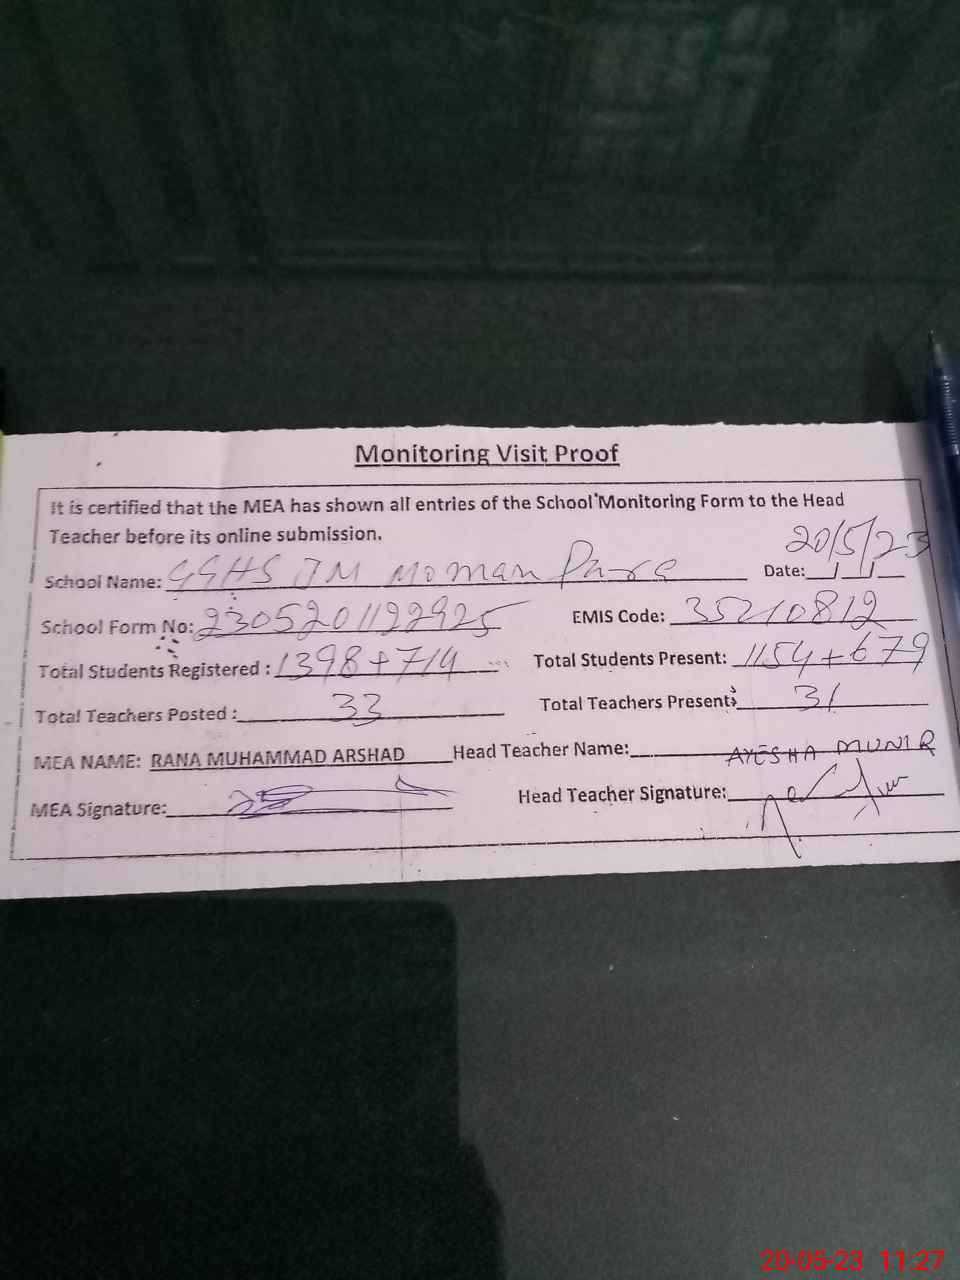 Monitoring Visit Proof
It is certified that the MEA has shown all entries of the School Monitoring Form to the Head
Teacher before its online submission.
School Name: GGHS JM Moman Date: 20/5/23
School Form No: 2305201122925 EMIS Code: 35210812
Total Students Registered : 1398+714 Total Students Present: 1154+679
Total Teachers Posted : 33 Total Teachers Present: 31
MEA NAME: RANA MUHAMMAD ARSHAD Head Teacher Name: AYESHA MUNIR
MEA Signature: Head Teacher Signature:
20-05-23 11:27